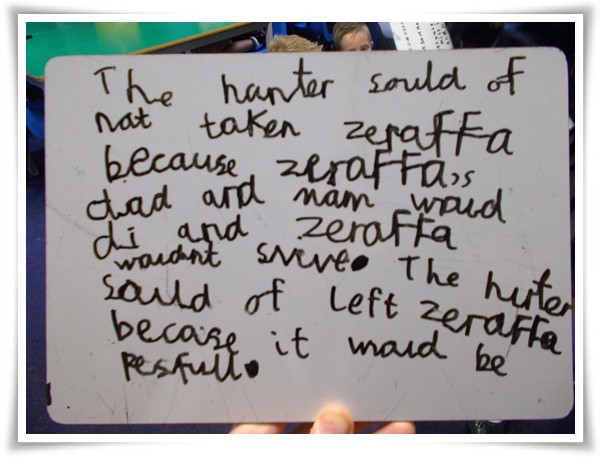 The hanter sould of
nat taken zeraffa
because zeraffa,s
dad and mam woud
di and zeraffa
woudnt svive. The huter
sould of left zeraffa
becase it woud be
pesfull.